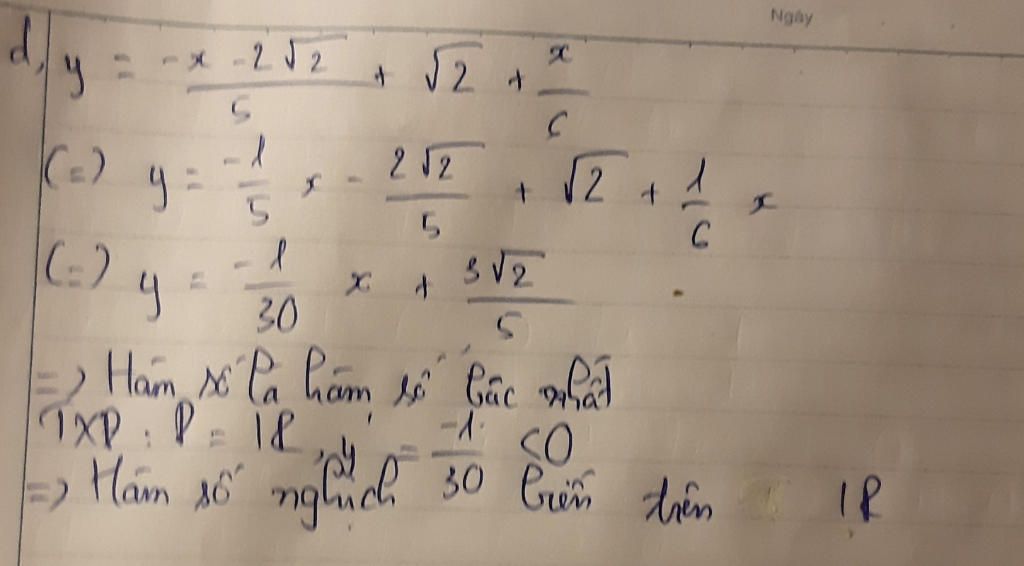 Ngày
d, y = -x - 2√2/5 + √2 + x/6
(=) y = -1/5 x - 2√2/5 + √2 + 1/6 x
(=) y = -1/30 x + 3√2/5
=> Hàm số là hàm số bậc nhất
TXĐ : D = IR, y' = -1/30 <0
=> Hàm số nghịch biến trên IR